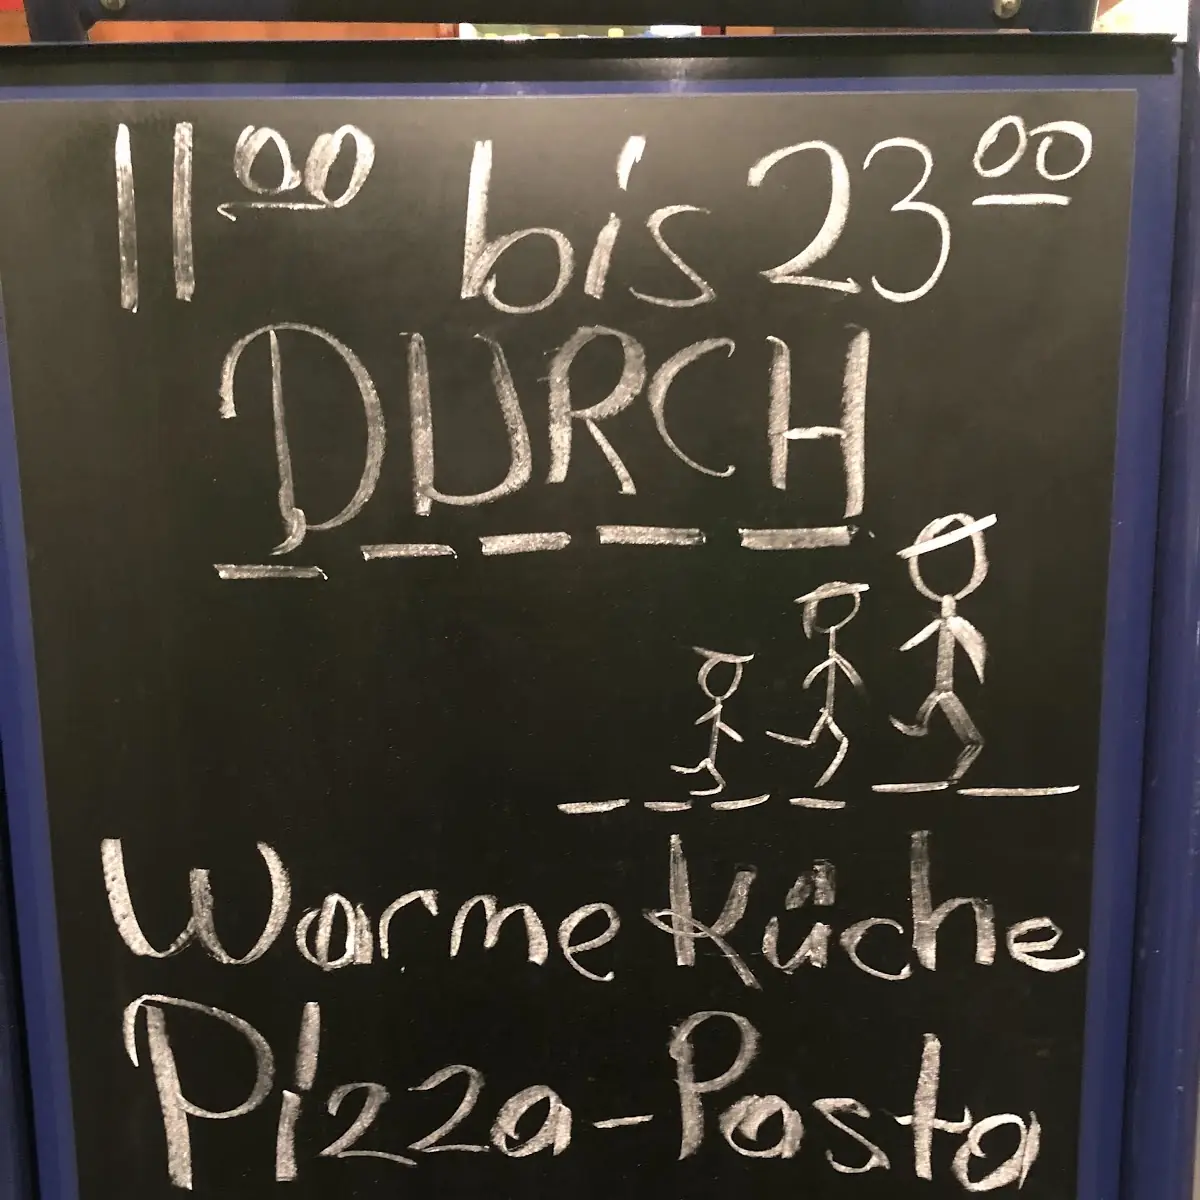 11⁰⁰ bis 23⁰⁰
DURCH
Warme Küche
Pizza-Pasta